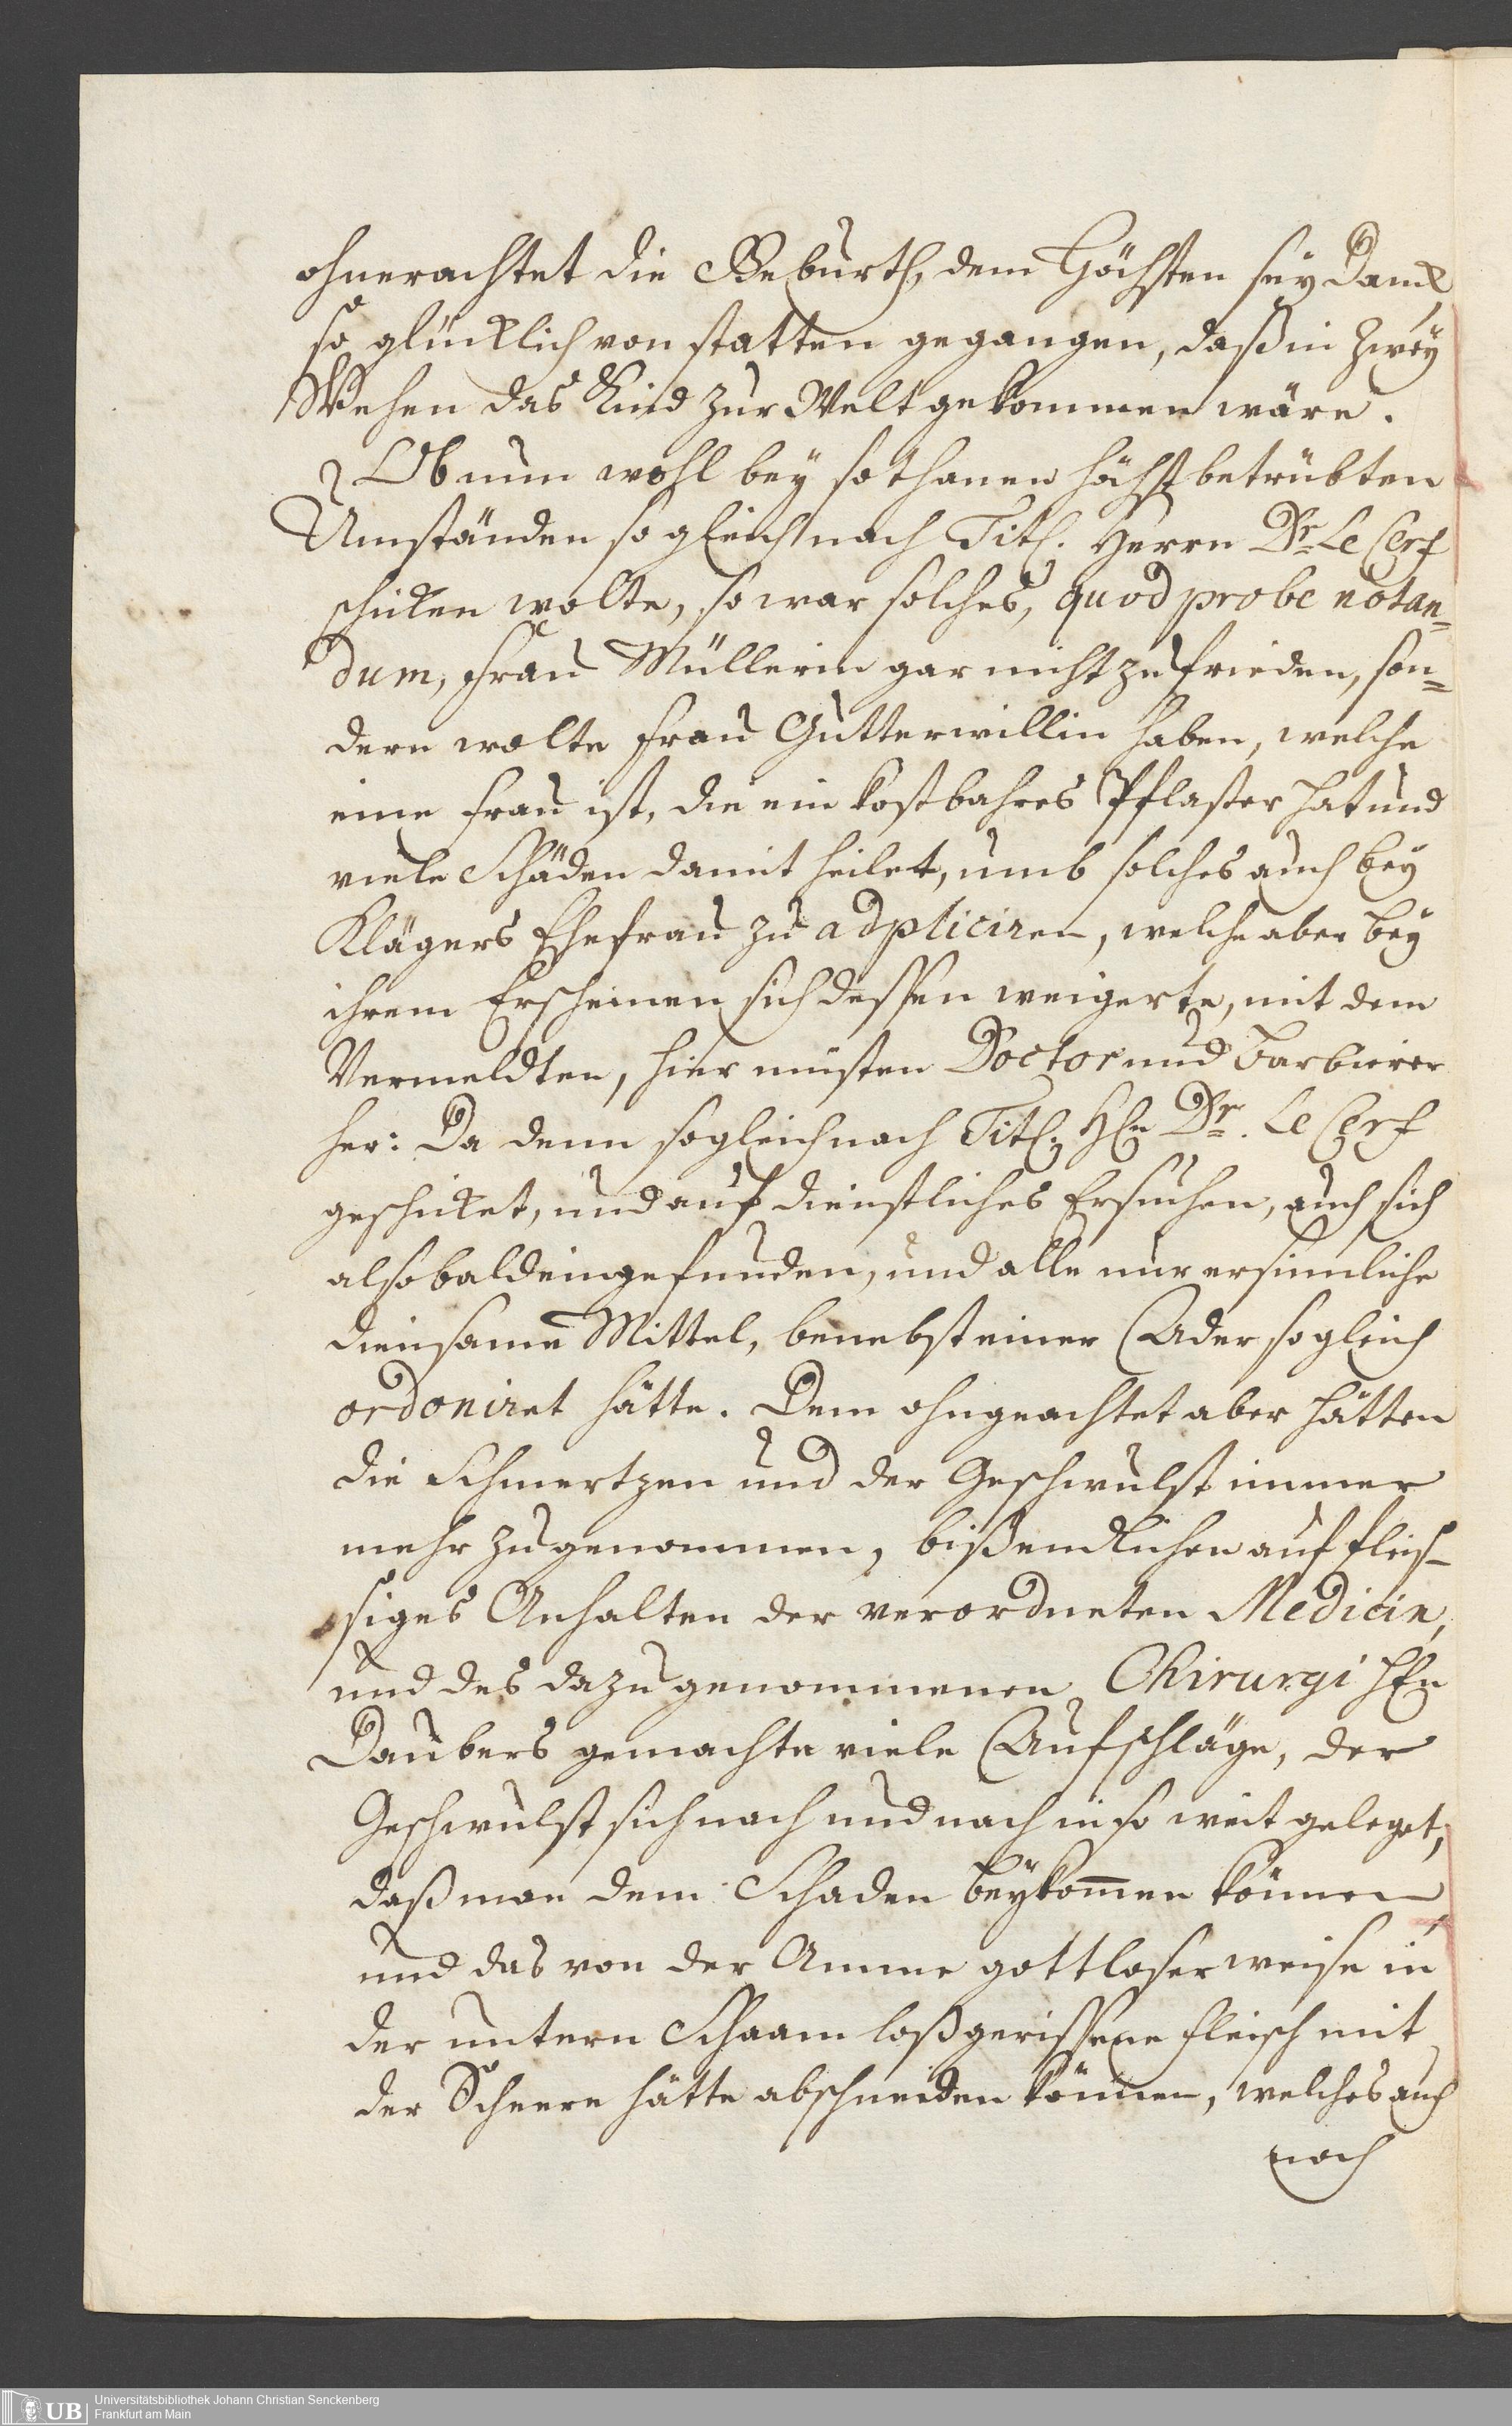 ohnerachtet die Geburth, dem Höchsten sey Danck
so glücklich von statten gegangen, daß in zwey
Wehen das Kind zur Welt gekommen wäre.
Ob nun wohl bey so thanen höchst betrübten
Umständen so gleich nach Titl. Herrn Dr. Le Cerf
schicken wolte, so war solches, quod probe notan=
dum, Frau Müllerin gar nicht zufrieden, son=
dern wolte Frau Gutterwillin haben, welche
eine Frau ist, die ein kostbahres Pflaster hat und
viele Schäden damit heilet, umb solches auch bey
Klägers Ehefrau zu adpliciren, welche aber bey
ihrem Erscheinen sich dessen weigerte, mit dem
Vermeldten, hier müsten Doctor und Barbierer
her: Da denn sogleich nach Titl. Hln Dr. Le Cerf
geschicket, und auf dienstliches Ersuchen, auch sich
alsobald eingefunden, und alle nur ersinnliche
diensame Mittel, benebst einer Ader so gleich
ordoniret hätte. Dem ohngeachtet aber hätten
die Schmertzen und der Geschwulst immer
mehr zugenommen, biß endlichen auf fleis-
siges Anhalten der verordneten Medicin,
und des dazu genommenen Chirurgi HEn
Daubers gemachte viele Aufschläge, der
Geschwulst sich nach und nach in so weit geleget,
daß man dem Schaden beykommen können
und das von der Amme gottloser weise in
der untern Schaam loßgerissene Fleisch mit
der Scheere hätte abschneiden können, welches auch
noch
UB Universitätsbibliothek Johann Christian Senckenberg
Frankfurt am Main